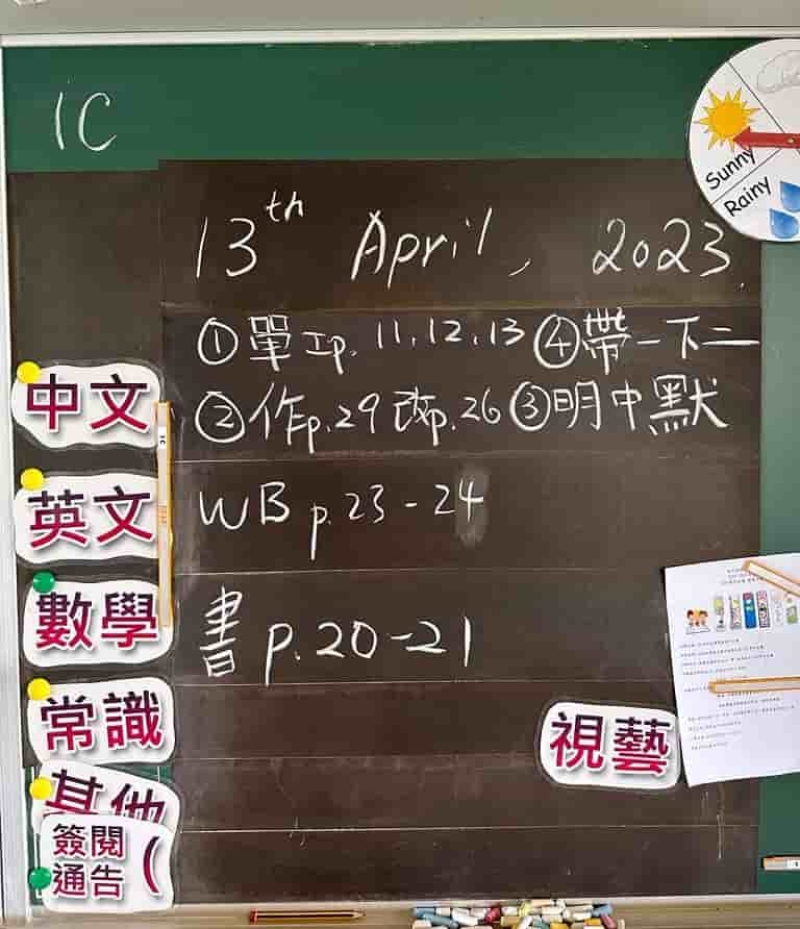 1C
Sunny
Rainy
13th April, 2023.
①單工p. 11,12,13 ④帶一下二
中文
②作p.29 改p.26 ③明中默
英文
WB p.23-24
數學
書 p.20-21
常識
視藝
其他
簽閱
通告 (